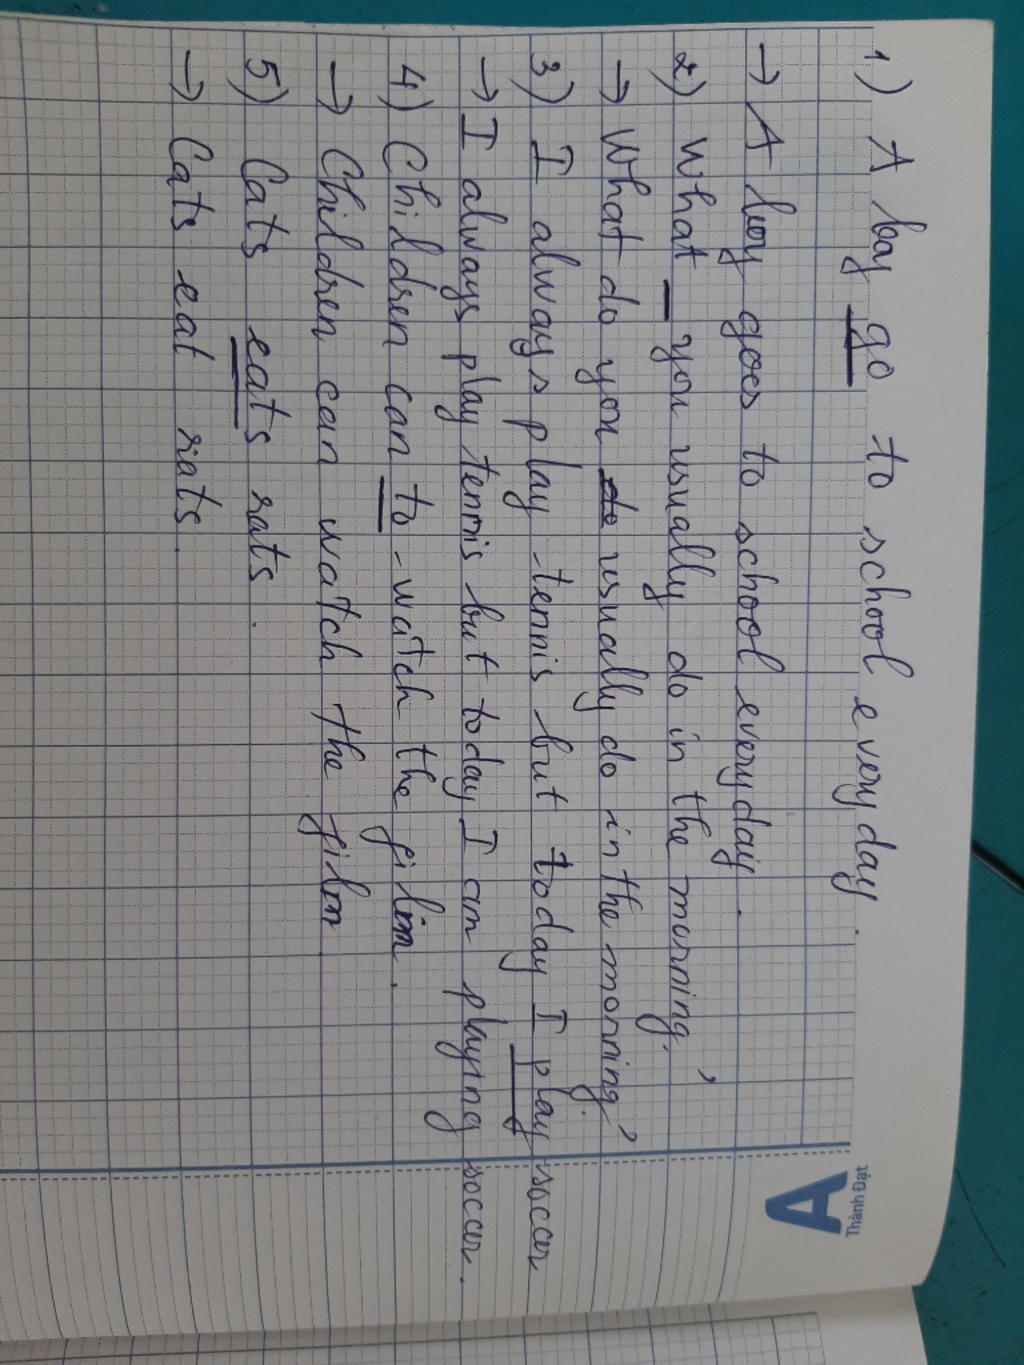 1) A boy go to school everyday.
→ A boy goes to school everyday.
2) What _ you usually do in the morning?
→ What do you do usually do in the morning?
3) I always play tennis but today I play soccer
→ I always play tennis but today I am playing soccer.
4) Children can to watch the film.
→ Children can watch the film
5) Cats eats rats.
→ Cats eat rats.
A
Thành Đạt